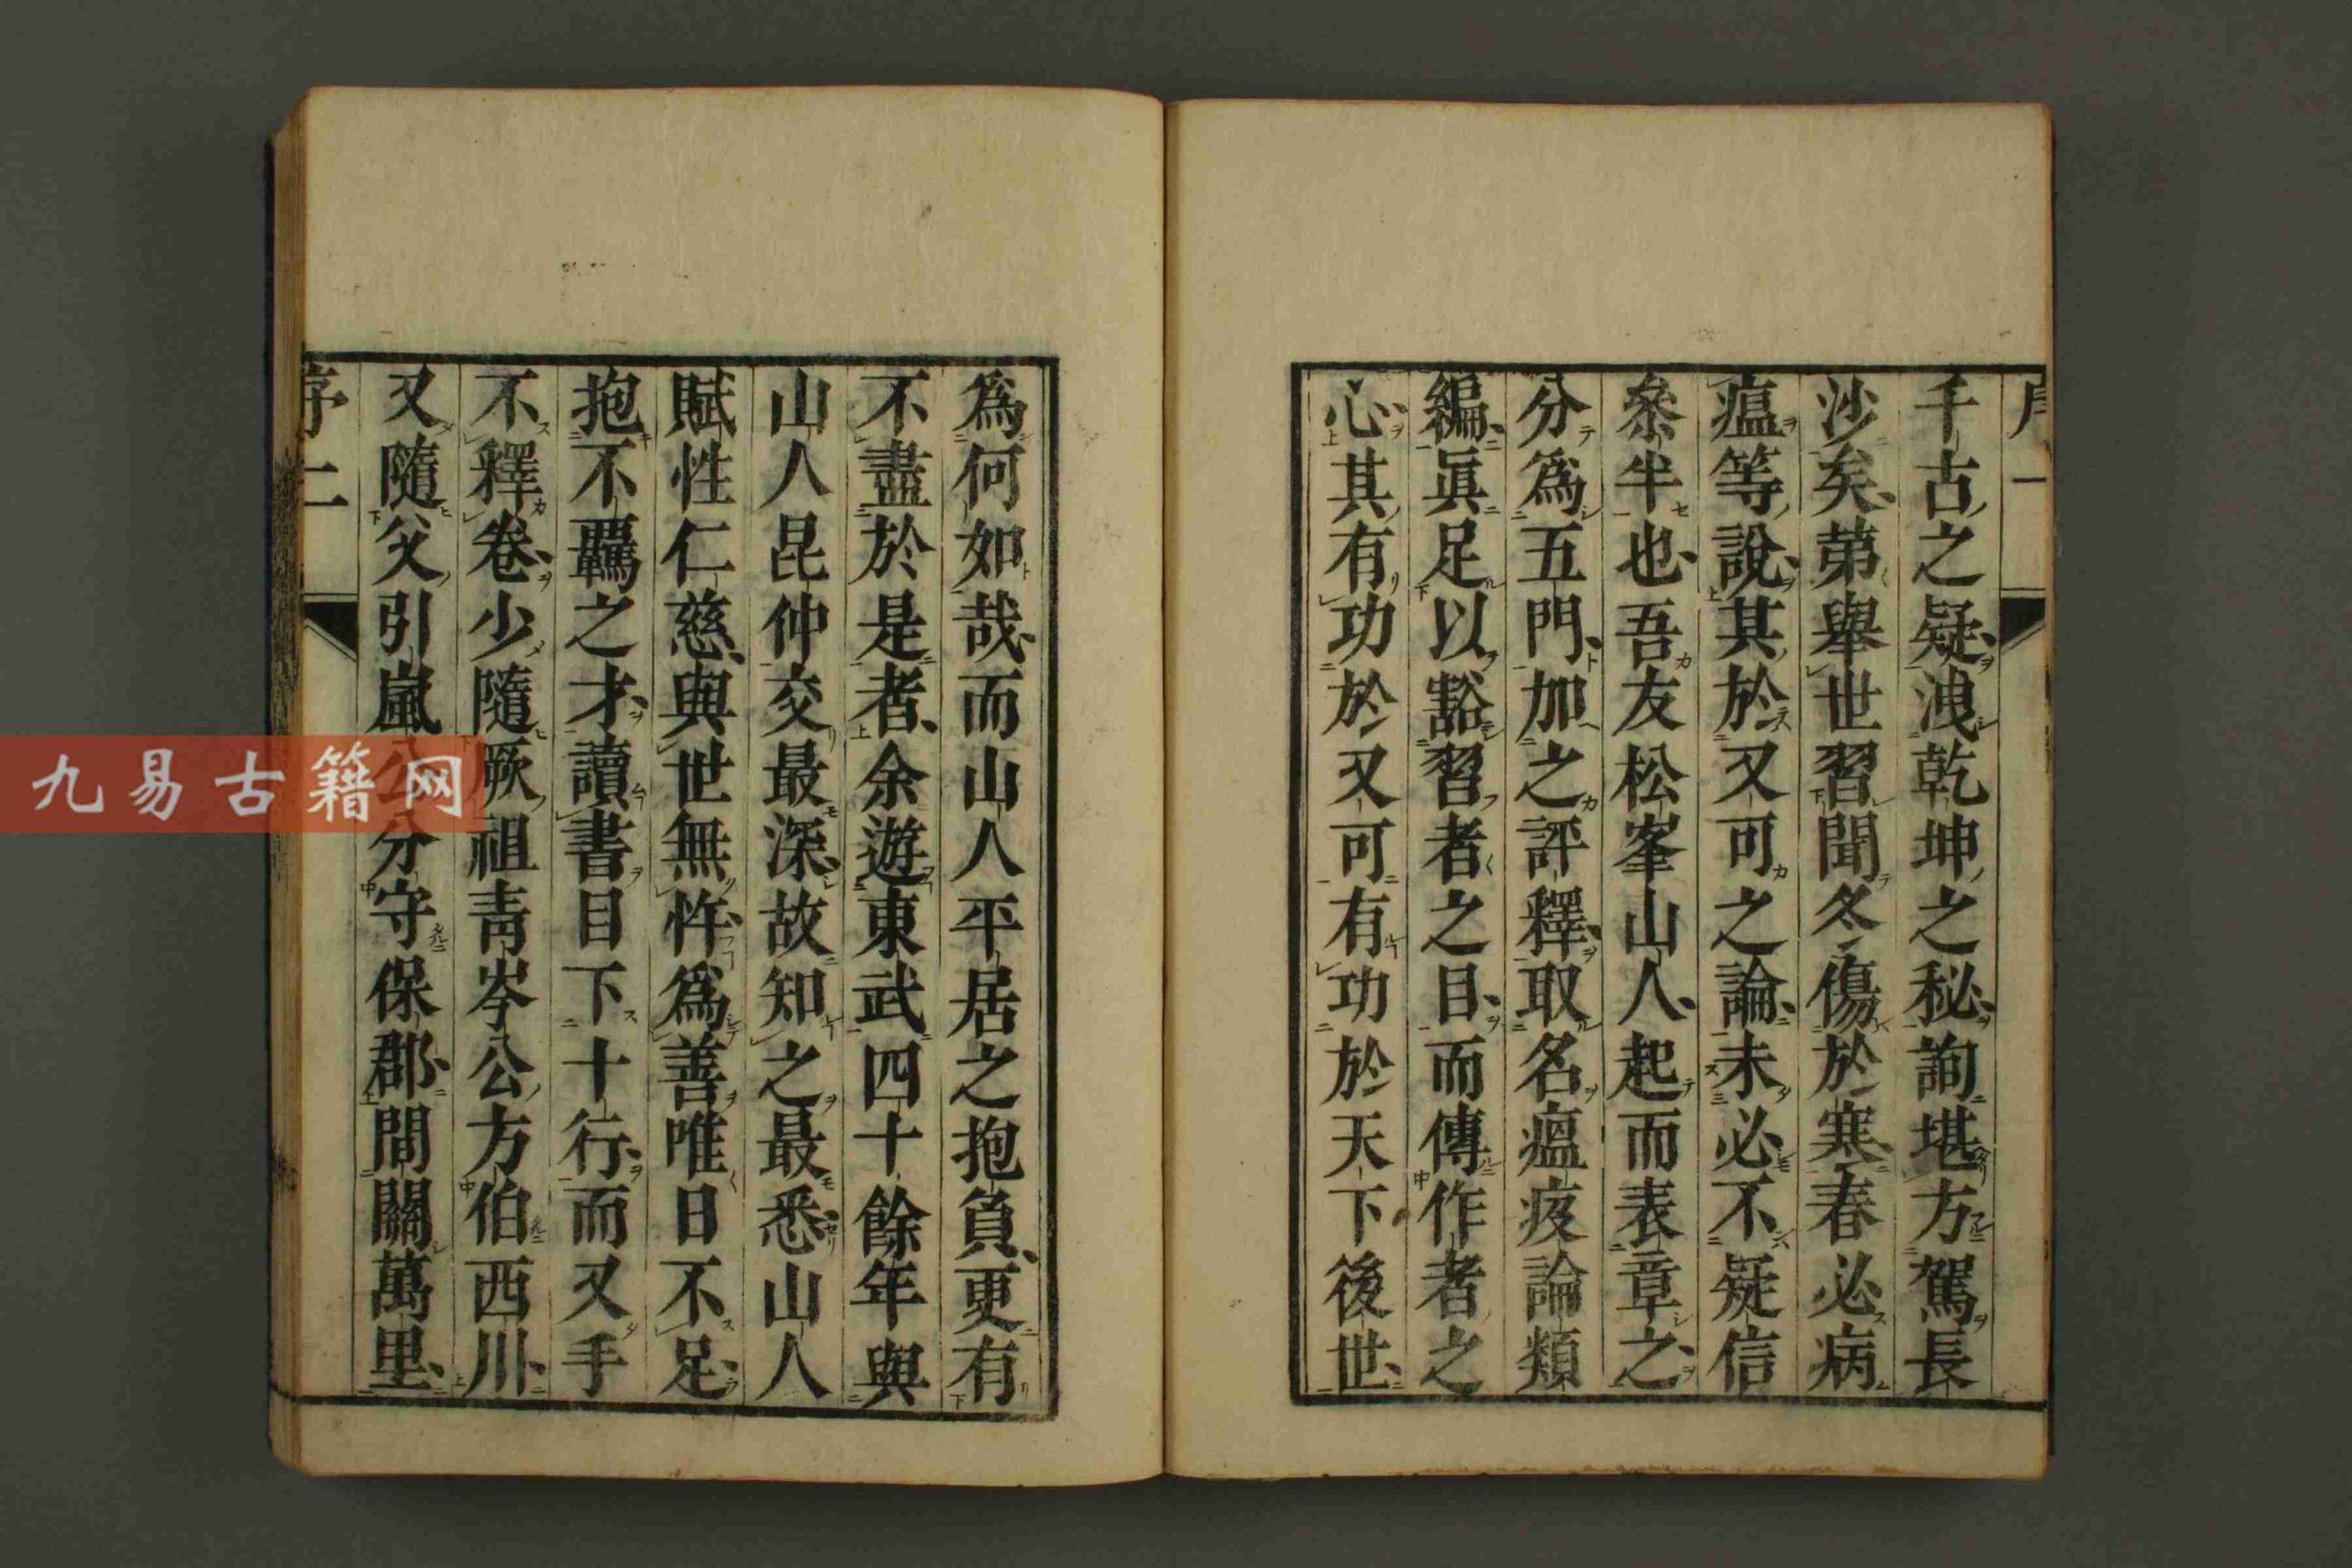 序一
千古之疑洩乾坤之秘詢堪方駕長
沙矣苐舉世習聞冬傷於寒春必病
瘟等說其於又可之論未必不疑信
叅半也吾友松峯山人起而表章之
分為五門加之評釋取名瘟疫論類
編眞足以豁習者之目而傳作者之
心其有功於又可有功於天下後世
為何如哉而山人平居之抱負更有
不盡於是者余遊東武四十餘年與
山人昆仲交最深故知之最悉山人
賦性仁慈與世無忤為善唯日不足
抱不羈之才讀書目下十行而又手
不釋卷少隨厥祖青岑公方伯西川
又隨父引嵐公分守保郡間關萬里
序二
九易古籍网